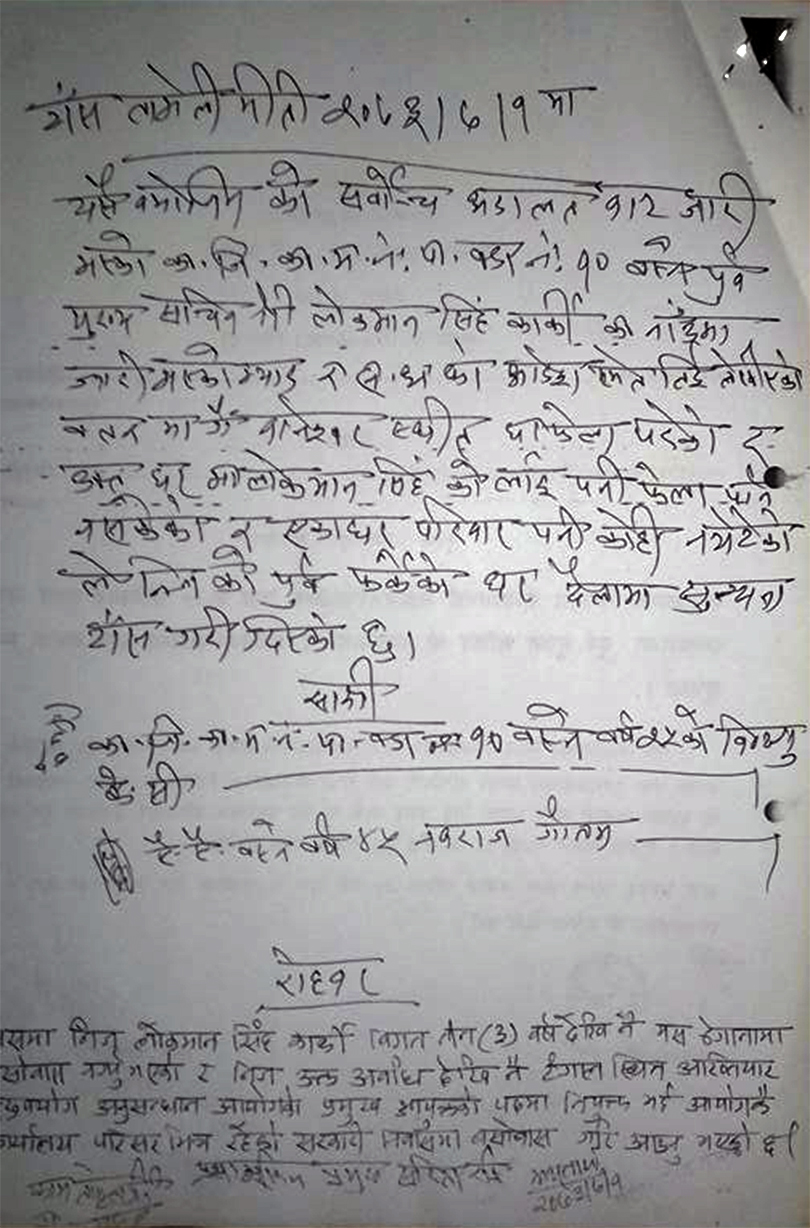 टाँस तामेली मीती २०७३।६।९ मा
यसै बमोजिम को सर्वोच्च अदालत बाट जारी
भएको का. जि. का. म. न. पा. वडा नं. १० बस्ने पुर्व
मुख्य सचिव श्री लोकमान सिंह कार्की को नाँउमा
जारी भएको म्याद र स. अ. को आदेश समेत लिई तोकीएको
वतन मा गै बानेश्वर स्थीत घर फेला परेको र
उक्त घर मा लोकमान सिंह को लाई पनी फेला पार्न
नसकेको र एकाघर परिवार पनी कोही नभेटेको
ले निज को पुर्व फर्केको घर दैलामा सुचना
टाँस गरी दिएको छु।
साक्षी
का. जि. का. म. न. पा. वडा नं १० बस्ने वर्ष २५ को विष्णु
के. सी
ऐ. ऐ. बस्ने बर्ष ४५ नवराज गौतम
रोहवर
यसमा निज लोकमान सिंह कार्की विगत तीन (३) वर्ष देखि नै यस ठेगानामा
र निज उक्त अवधि देखि नै टंगाल स्थित अख्तियार
दुरुपयोग अनुसन्धान आयोगको प्रमुख आयुक्तको पदमा नियुक्त भई आयोगकै
कार्यालय परिसर भित्र रहेको सरकारी निवासमा बसोबास गरि आउनु भएको छ।